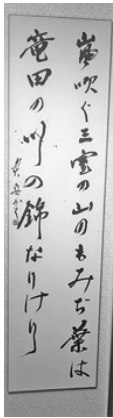 嵐吹く三室の山のもみぢ葉は
竜田の川の錦なりけり